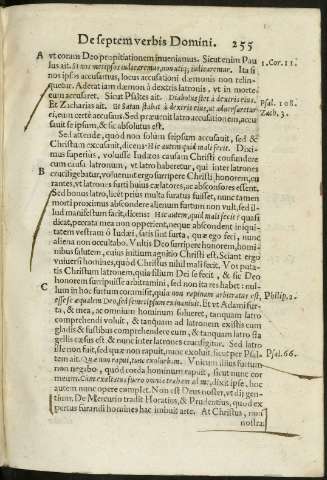 De septem verbis Domini. 255
A vt coram Deo propitiationem inueniamus. Sicut enim Pau
lus ait. Si nos metipsos iudicaremus, non vtiq; iudicaremur. Ita si 1. Cor. 11.
nos ipsos accusamus, locus accusationi dæmonis non relin-
quetur. Aderat iam dæmon à dextris latronis, vt in morte
eum accusaret. Sicut Psaltes ait. Diabolus stet à dextris eius. Psal. 108.
Et Zacharias ait. Et Satan stabat à dextris eius, vt aduersaretur Zach. 3.
ei, eum certè accusans. Sed præuenit latro accusationem, accu
sauit se ipsum, & sic absolutus est.
Sed attende, quod non solùm seipsum accusauit, sed &
Christum excusauit, dicens: Hic autem quid mali fecit? Dixi-
mus superius, voluisse Iudæos caudam Christi confundere
cum causis latronum, vt latro haberetur, qui inter latrones
B crucifigebatur, voluerunt ergo surripere Christi honorem, cu
rantes, vt latrones furti huius cælatores, ac absconsores essent.
Sed bonus latro, licèt prius multa furatus fuisset, nunc tamen
morti proximus abscondere alienum furtum non vult, sed il-
lud manifestum facit, dicens: Hic autem, quid mali fecit? quasi
dicat, peccata mea non opperient, neque abscondent iniqui-
tatem vestram ô Iudæi, satis sint furta, quæ ego feci, nunc
aliena non occultabo. Vultis Deo surripere honorem, homi-
nibus salutem, cuius initium agnitio Christi est. Sciant ergo
vniuersi homines, quòd Christus nihil mali fecit. Vos puta-
tis Christum latronem, quia filium Dei se fecit, & sic Deo
honorem surripuisse arbitramini, sed non ita res habet: nul-
C lum in hoc furtum commisit, quia non rapinam arbitratus est, Philip. 2.
esse se æqualem Deo, sed semetipsum exinaniuit. Et vt Adami fur-
ta, & mea, ac omnium hominum solueret, tanquam latro
comprehendi voluit, & tanquam ad latronem existis cum
gladiis & fustibus comprehendere eum, & tanquam latro fla
gellis cæsus est & nunc inter latrones crucifigitur. Sed latro
ille non fuit, sed quæ non rapuit, nunc exoluit, sicut per Psal Psal. 66.
tem ait. Quæ non rapui, tunc exoluebam. Vnicum illius furtum
non negabo, quòd corda hominum rapuit, sicut nunc cor
meum. Cum exaltatus fuero omnia traham ad me, dixit ipse, hoc
autem nunc opere complet. Non est Deus noster, vt dij gen-
tium. De Mercurio tradit Horatius, & Prudentius, quòd ex
pertus furandi homines hac imbuit arte. At Christus, non
nostra